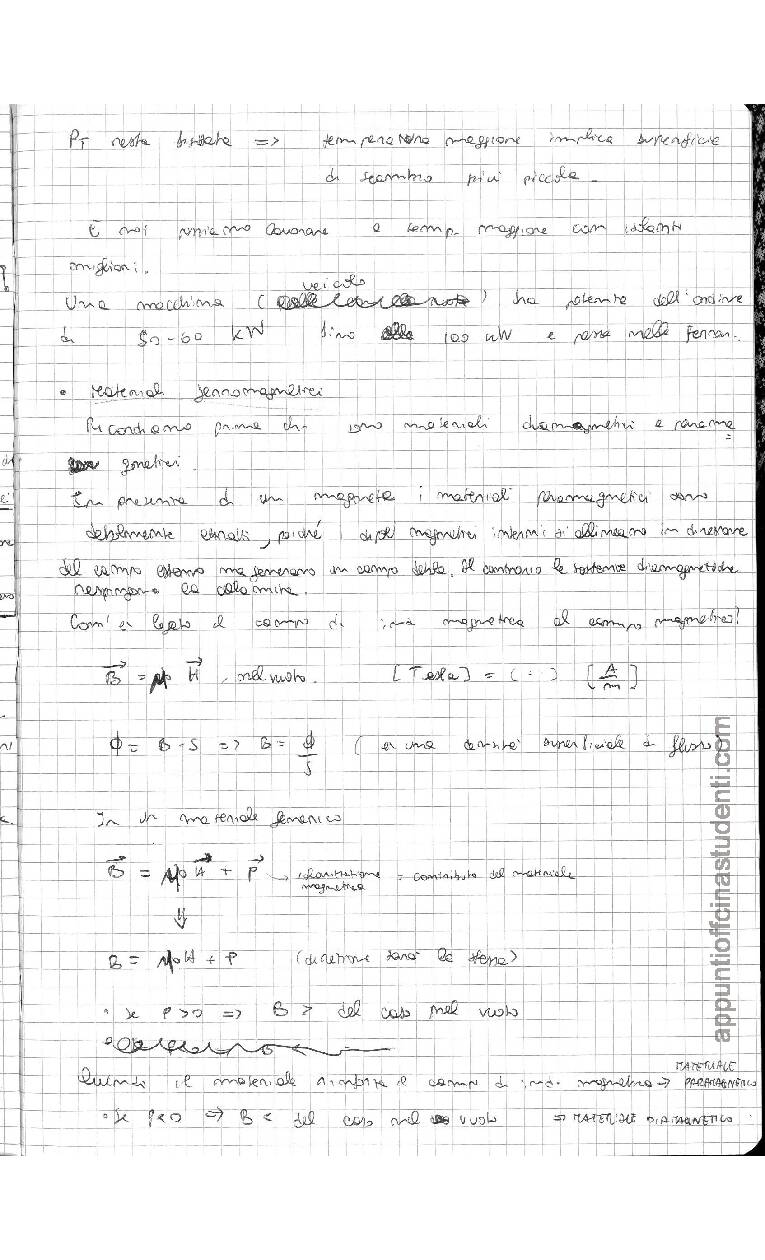 PT resta fissata => temperatura maggiore implica superficie
di scambio più piccola.
E noi possiamo lavorare a temp. maggiore con isolanti
migliori.
veicolo
Una macchina ( ) ha potenze dell'ordine
di 50-60 kW fino 100 kW e passa nelle Ferrari.
• Materiali ferromagnetici
Ricordiamo prima che sono materiali diamagnetici e parama
gnetici.
In presenza di un magnete i materiali paramagnetici sono
debolmente attratti, poiché i dipoli magnetici interni si allineano in direzione
del campo esterno ma generano un campo debole. Al contrario le sostanze diamagnetiche
respingono la calamita.
Com'è legato il campo di ind. magnetica al campo magnetico?
B = μ0 H , nel vuoto. [Tesla] = (·) [A/m]
ϕ = B · S => B = ϕ/S ( è una densità superficiale di flusso)
In un materiale generico
B = μ0 H + P → magnetica = contributo del materiale
⇓
B = μ0 H + P (direzione sarà la stessa)
• Se P>0 => B > del caso nel vuoto
MATERIALE
Quindi il materiale rinforza il campo di ind. magnetica → PARAMAGNETICO
• Se P<0 => B < del caso nel vuoto => MATERIALE DIAMAGNETICO
appuntioffcinastudenti.com